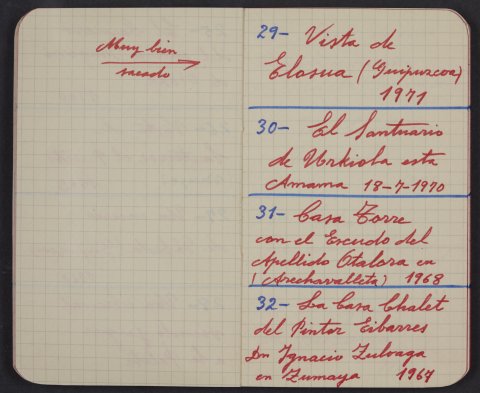 Muy bien
sacado
29- Vista de
Elosua (Guipuzcoa)
1971
30- El Santuario
de Urkiola esta
Amama 18-7-1970
31- Casa Torre
con el Escudo del
Apellido Otalora en
(Arechavalleta) 1968
32- La Casa Chalet
del Pintor Eibarres
Dn Ignacio Zuloaga
en Zumaya 1967